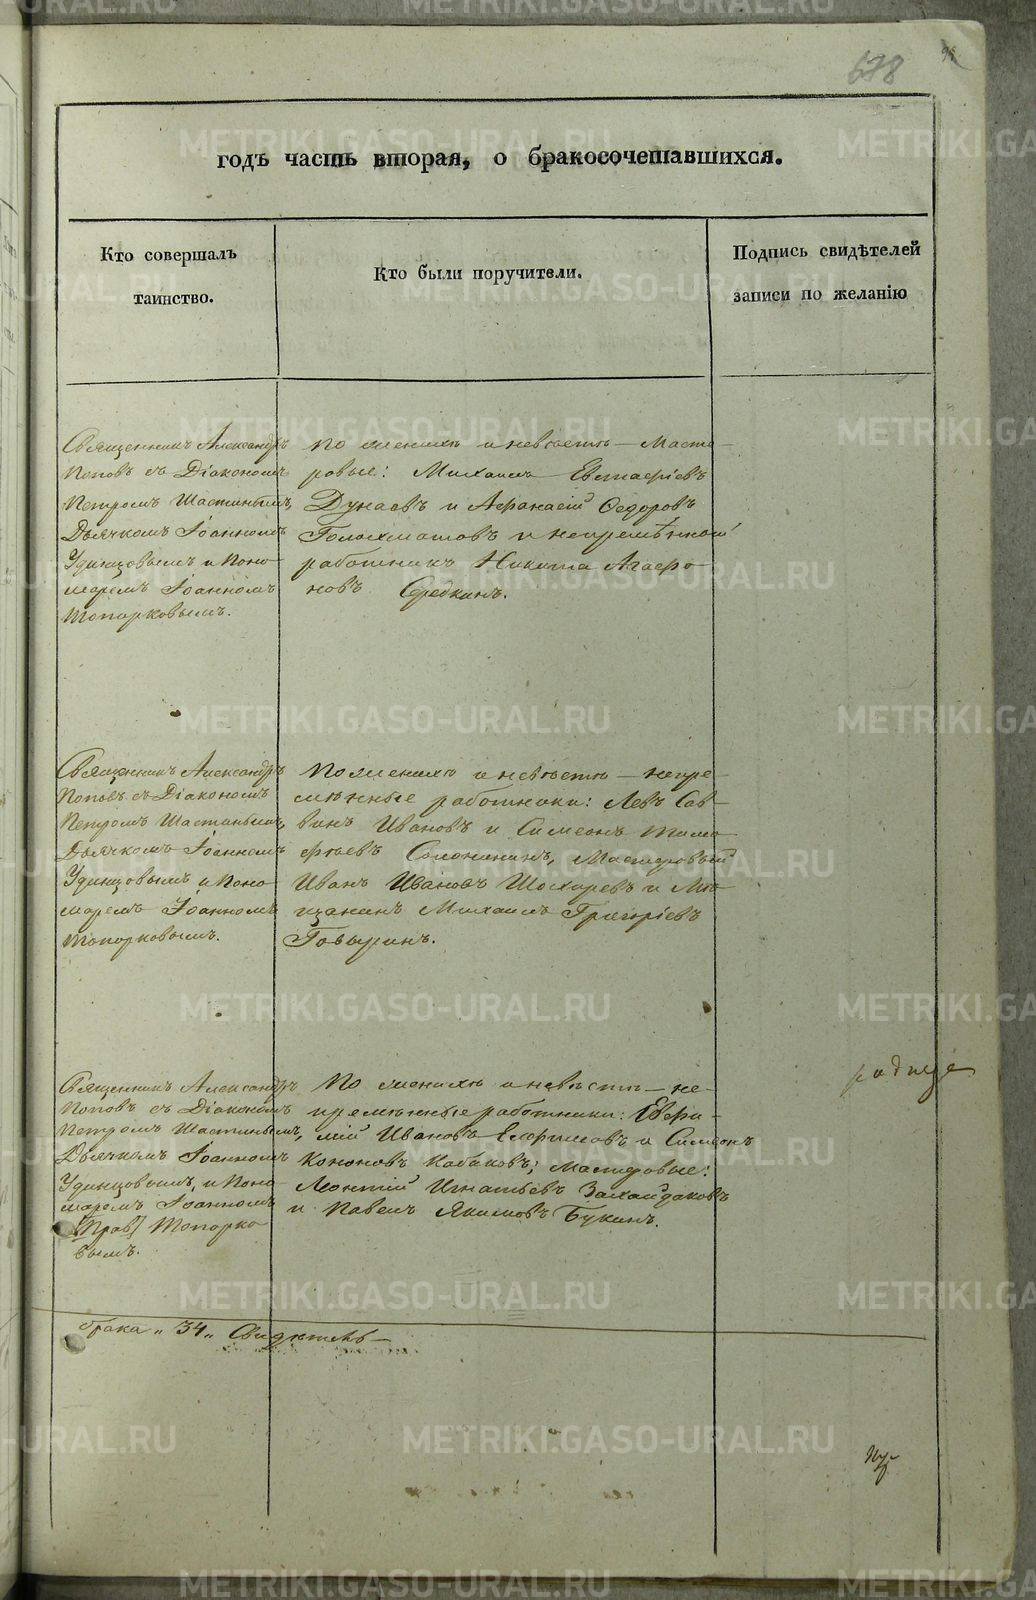 678
годъ часть вторая, о бракосочетавшихся.
Кто совершалъ
таинство.
Кто были поручители.
Подпись свидѣтелей
записи по желанію
Священникъ Александръ
Поповъ съ Діакономъ
Петромъ Шастинымъ,
Дьячкомъ Іоанномъ
Удинцовымъ и Поно-
маремъ Іоанномъ
Топорковымъ.
По женихѣ и невѣстѣ – Масте-
ровые: Михаилъ Евстафіевъ
Дунаевъ и Афанасій Федоровъ
и непремѣнной
работникъ Никита Агафо-
новъ Середкинъ.
Священникъ Александръ
Поповъ съ Діакономъ
Петромъ Шастинымъ,
Дьячкомъ Іоанномъ
Удинцовымъ и Поно-
маремъ Іоанномъ
Топорковымъ.
По женихѣ и невѣстѣ – непре-
мѣнные работники: Левъ Сав-
винъ Ивановъ и Симеонъ Тимо-
фѣевъ Мастеровый
Иванъ Ивановъ и Мѣ-
щанинъ Михаилъ Григоріевъ
Говыринъ.
Священникъ Александръ
Поповъ съ Діакономъ
Петромъ Шастинымъ,
Дьячкомъ Іоанномъ
Удинцовымъ, и Поно-
маремъ Іоанномъ
Топорко-
вымъ.
По женихѣ и невѣстѣ – не-
премѣнные работники: Евфи-
мій Ивановъ Ефимовъ и Симеонъ
Кононовъ Кабаковъ; мастеровые:
Леонтій Игнатьевъ
и Павелъ Якимовъ Букинъ.
брака „34„
METRIKI.GASO-URAL.RU